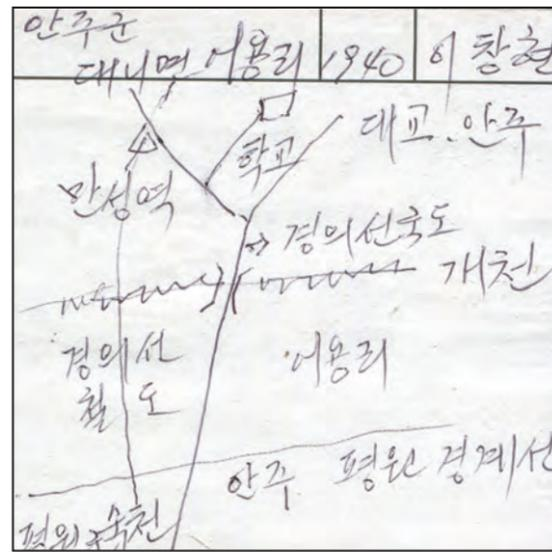 안주군
대니면 어용리 1940 이창현
학교
대교.안주
만성역
경의선국도
개천
경의선
철도
어용리
안주 평원 경계선
평원 숙천